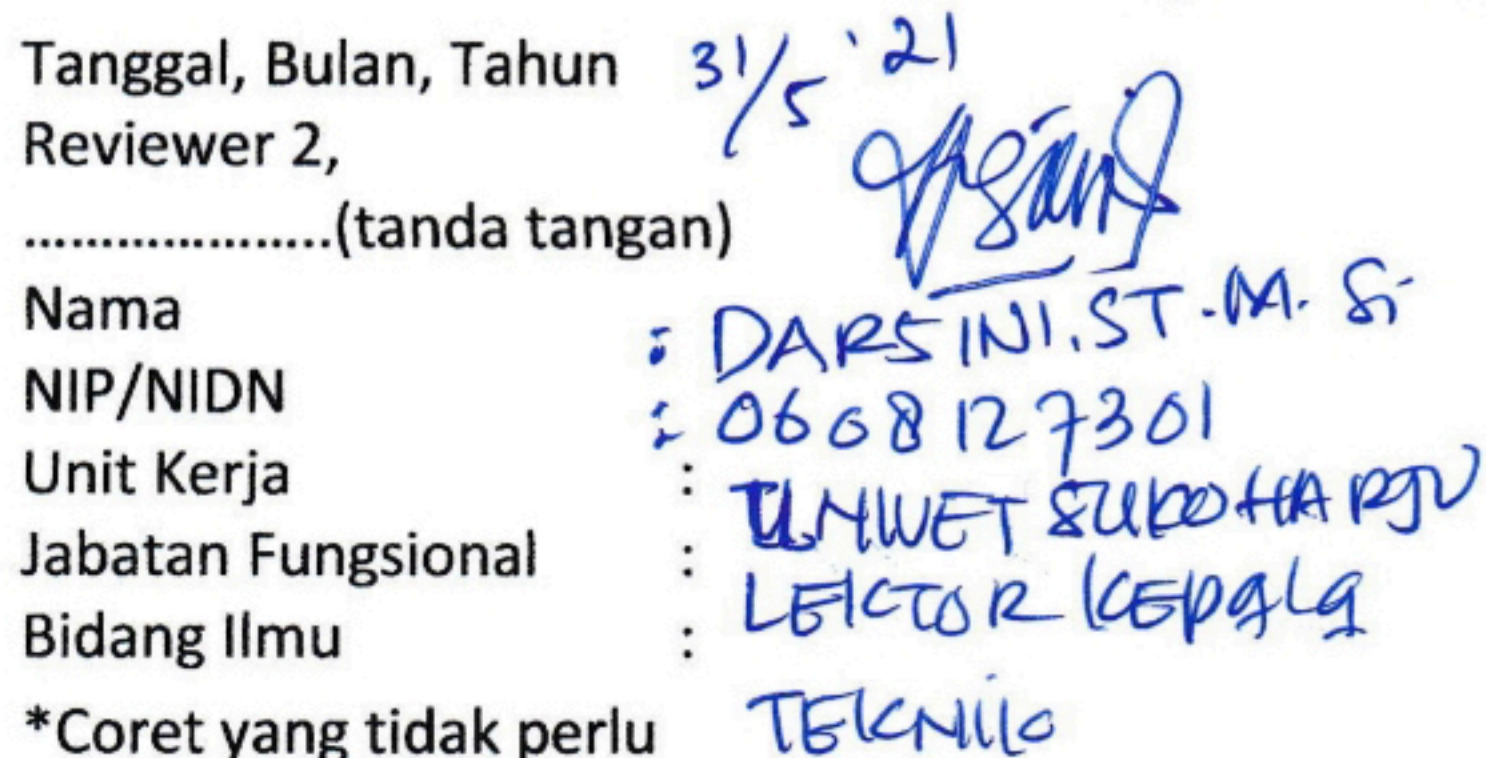 Tanggal, Bulan, Tahun 31/5 '21
Reviewer 2,
.....................(tanda tangan)
Nama : DARSINI.ST.M.Si
NIP/NIDN : 0608127301
Unit Kerja : UNIVET SUKOHARJO
Jabatan Fungsional : LEKTOR KEPALA
Bidang Ilmu : TEKNIK
*Coret yang tidak perlu